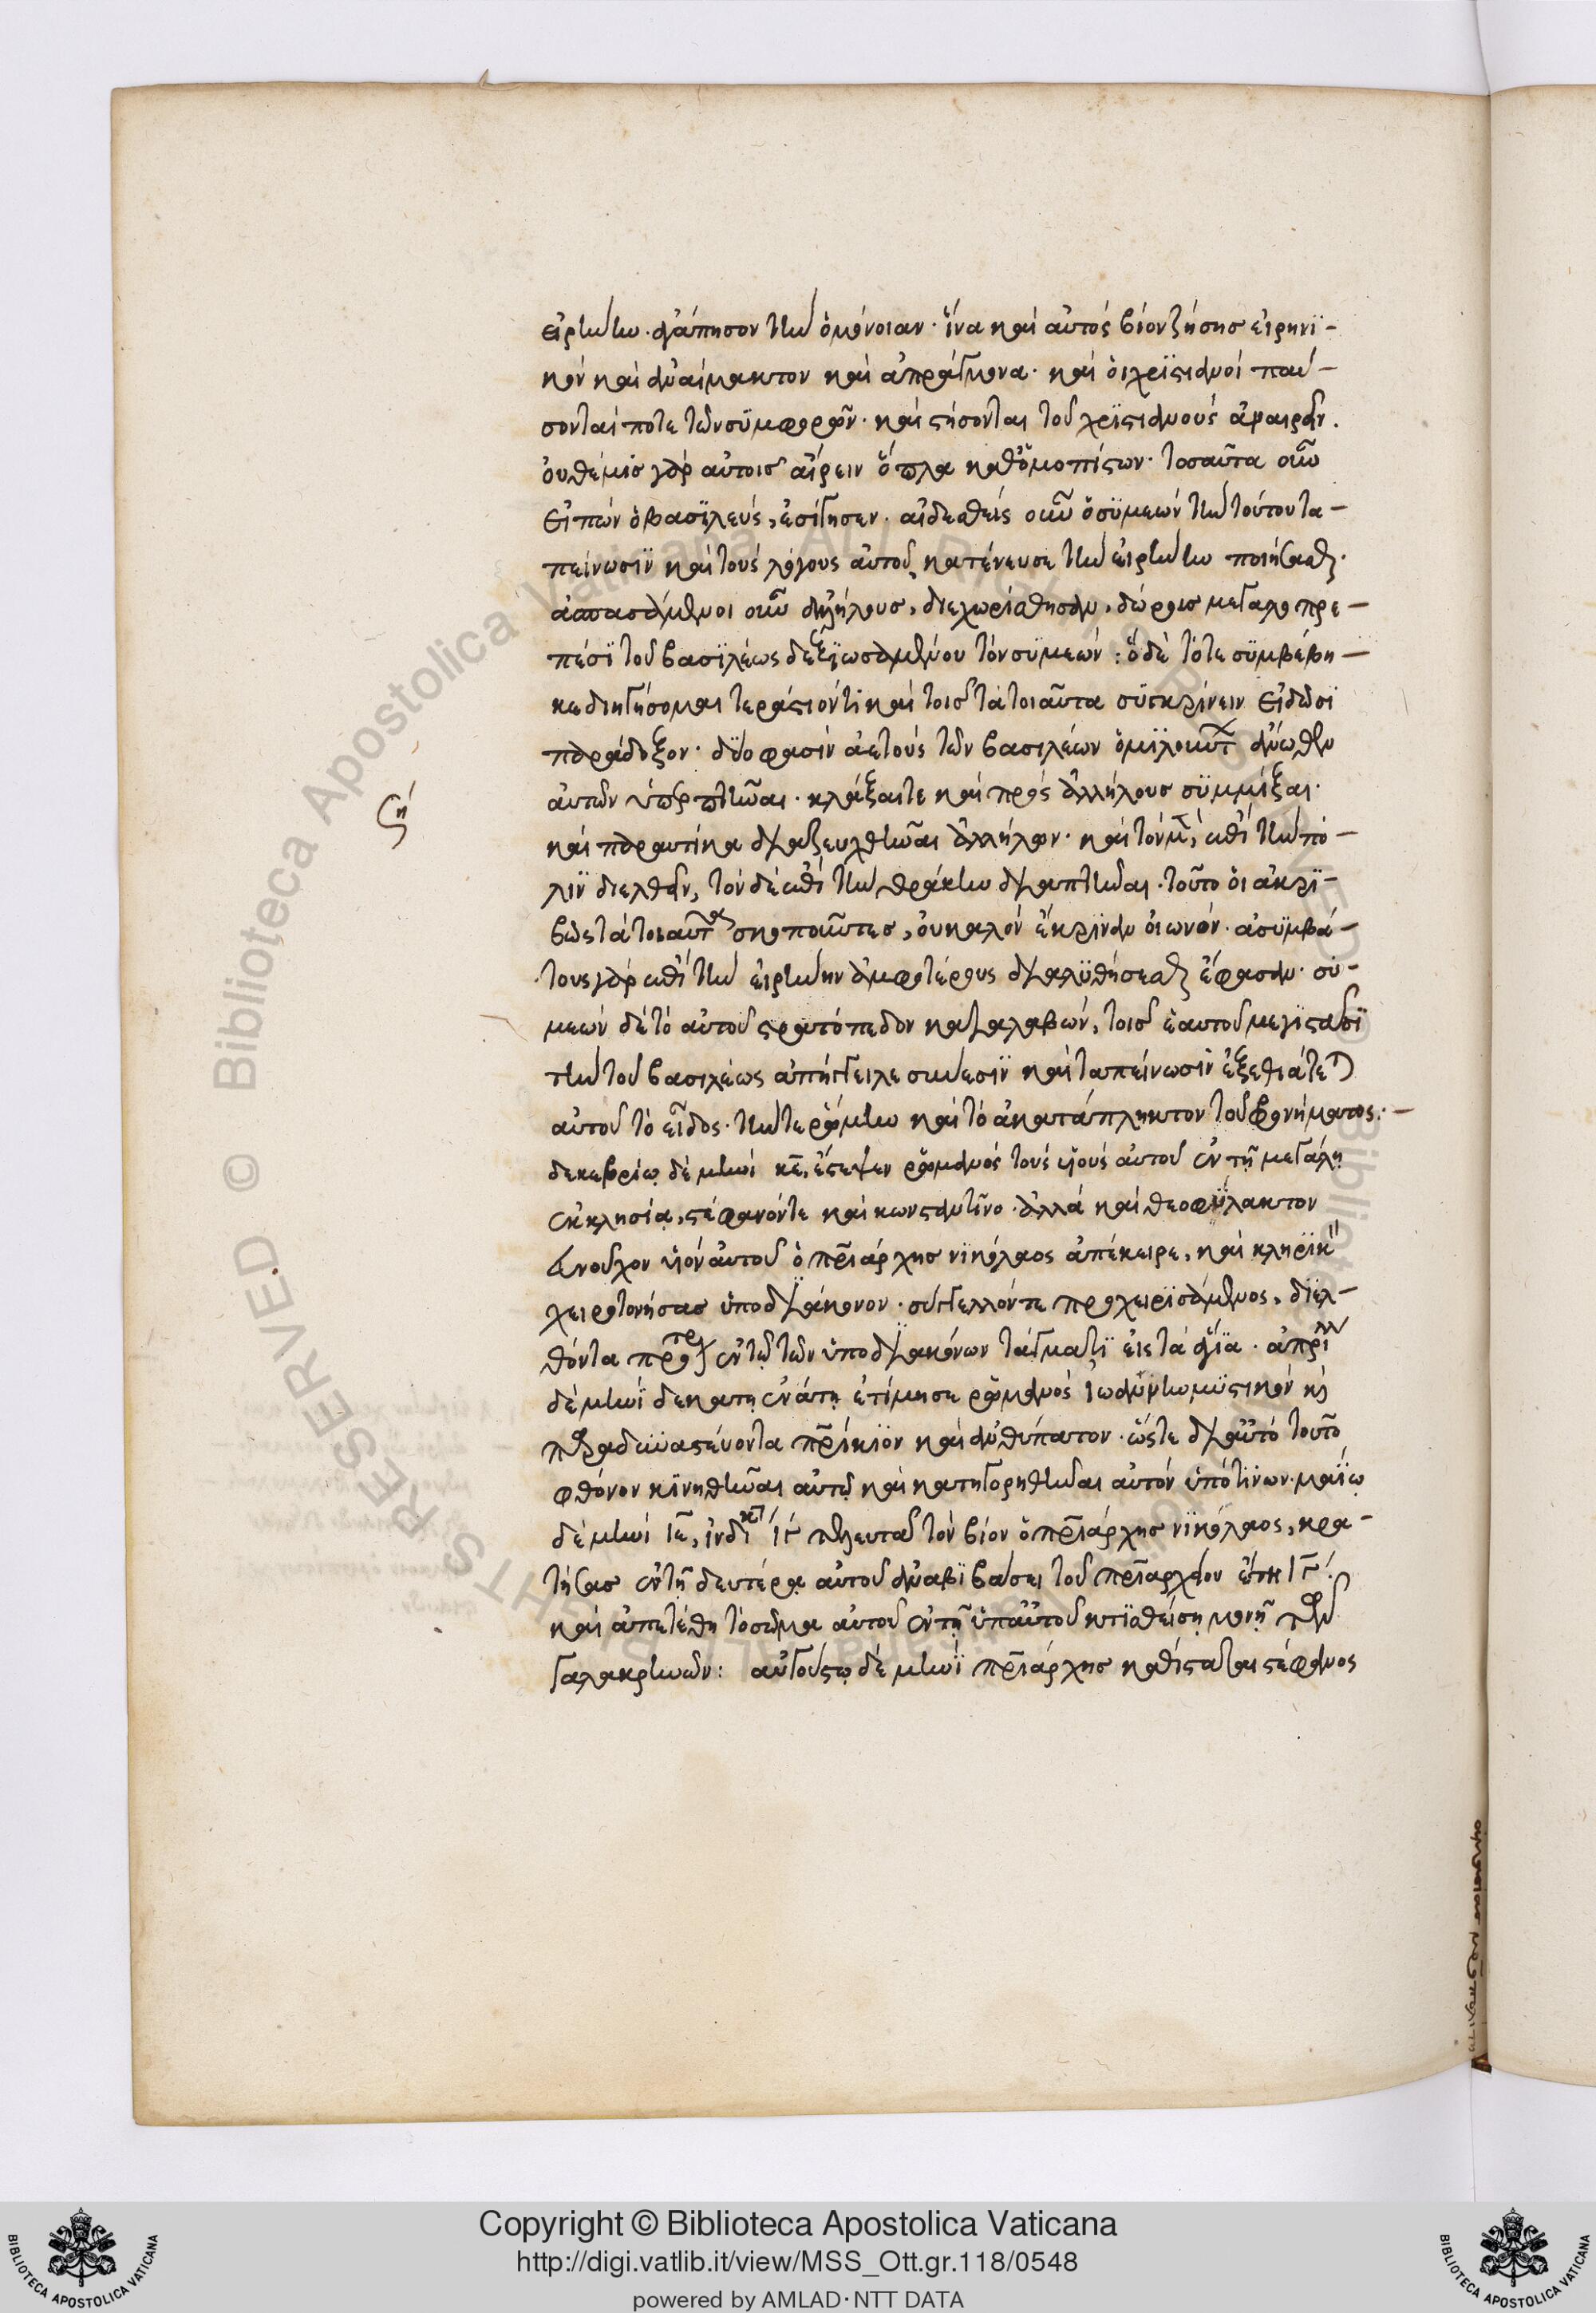 εἰρήνην· ἀγάπησον τὴν ὁμόνοιαν· ἵνα καὶ αὐτὸς βίον ζήσης εἰρηνϊ-
κὸν καὶ ἀναίμακτον καὶ ἀπράγμονα· καὶ οἱ χρϊστιανοὶ παύ-
σονταί ποτε τῶν συμφορῶν· καὶ στήσονται τοῦ χρϊστιανοὺς ἀναιρεῖν.
οὐ θέμις γὰρ αὐτοῖς αἴρειν ὅπλα καθ' ὁμοπίστων· τοσαῦτα οὖν
εἰπὼν ὁ βασϊλεὺς, ἐσίγησεν. αἰδεσθεὶς οὖν ὁ συμεὼν τὴν τούτου τα-
πείνωσϊν καὶ τοὺς λόγους αὐτοῦ, κατένευσε τὴν εἰρήνην ποιήσασθαι.
ἀσπασάμενοι οὖν ἀλλήλους, διεχωρίσθησαν, δώροις μεγαλοπρε-
πέσϊ τοῦ βασϊλέως δεξϊωσαμένου τὸν συμεών: ὃ δὲ τότε συμβέβη-
κε διηγήσομαι τεράστιόν τι καὶ τοῖς τὰ τοιαῦτα συγκρίνειν εἰδόσϊ
παράδοξον· δύο φασὶν ἀετοὺς τῶν βασιλέων ὁμϊλούντων ἄνωθεν
αὐτῶν ὑπερπτῆναι. κλάξαι τε καὶ πρὸς ἀλλήλους συμμίξαι.
καὶ παραυτίκα διαζευχθῆναι ἀλλήλων· καὶ τὸν μὲν, ἐπὶ τὴν πό-
λϊν διελθεῖν, τὸν δὲ ἐπὶ τὴν θράκην διαπτῆναι. τοῦτο οἱ ἀκρϊ-
βῶς τὰ τοιαῦτα σκοποῦντες, οὐ καλὸν ἔκρϊναν οἰωνόν. ἀσυμβά-
τους γὰρ ἐπὶ τὴν εἰρήνην ἀμφοτέρους διαλυθήσεσθαι ἔφασαν· συ-
μεὼν δὲ τὸ αὐτοῦ στρατόπεδον καταλαβὼν, τοῖς ἑαυτοῦ μεγιστᾶσϊ
τὴν τοῦ βασιλέως ἀπήγγειλε σύνεσϊν καὶ ταπείνωσιν ἐξεθείαζέ τε
αὐτοῦ τὸ εἶδος· τήν τε ῥώμην καὶ τὸ ἀκατάπληκτον τοῦ φρονήματος.-
δεκεβρίῳ δὲ μηνὶ κε, ἔστεψεν ῥωμανὸς τοὺς υἱοὺς αὐτοῦ ἐν τῇ μεγάλῃ
ἐκκλησίᾳ, στέφανόν τε καὶ κωνσταντῖνο· ἀλλὰ καὶ θεοφύλακτον
εὐνοῦχον υἱὸν αὐτοῦ ὁ πριάρχης νϊκόλαος ἀπέκειρε, καὶ κληρϊκὸν
χειροτονήσας ὑποδιάκονον· σύγγελλόν τε προχειρϊσάμενος, διελ-
θόντα πρότερον ἐν τῷ τῶν ὑποδιακόνων τάγματϊ εἰς τὰ ἅγϊα. ἀπριλλίῳ
δὲ μηνὶ δεκάτῃ ἐνάτῃ ἐτίμησε ῥωμανὸς ἰωάννην μυστικὸν καὶ
παραδυναστεύοντα πρίκϊον καὶ ἀνθύπατον· ὥστε δι' αὐτὸ τοῦτο
φθόνον κϊνηθῆναι αὐτῷ καὶ κατηγορηθῆναι αὐτὸν ὑπό τϊνων. μαΐῳ
δὲ μηνὶ ιε, ἰνδικτ ιγ τελευτᾷ τὸν βίον ὁ πριάρχης νϊκόλαος, κρα-
τήσας ἐν τῇ δευτέρᾳ αὐτοῦ ἀναβϊβάσει τοῦ πριαρχείου ἔτη ιγ:
καὶ ἀπετέθη τὸ σῶμα αὐτοῦ ἐν τῇ ὑπ' αὐτοῦ κτϊσθείσῃ μονῇ τῶν
γαλακρηνῶν: αὐγούστῳ δὲ μηνὶ πριάρχης καθίσταται στέφανος
ση
Copyright © Biblioteca Apostolica Vaticana
http://digi.vatlib.it/view/MSS_Ott.gr.118/0548
powered by AMLAD·NTT DATA